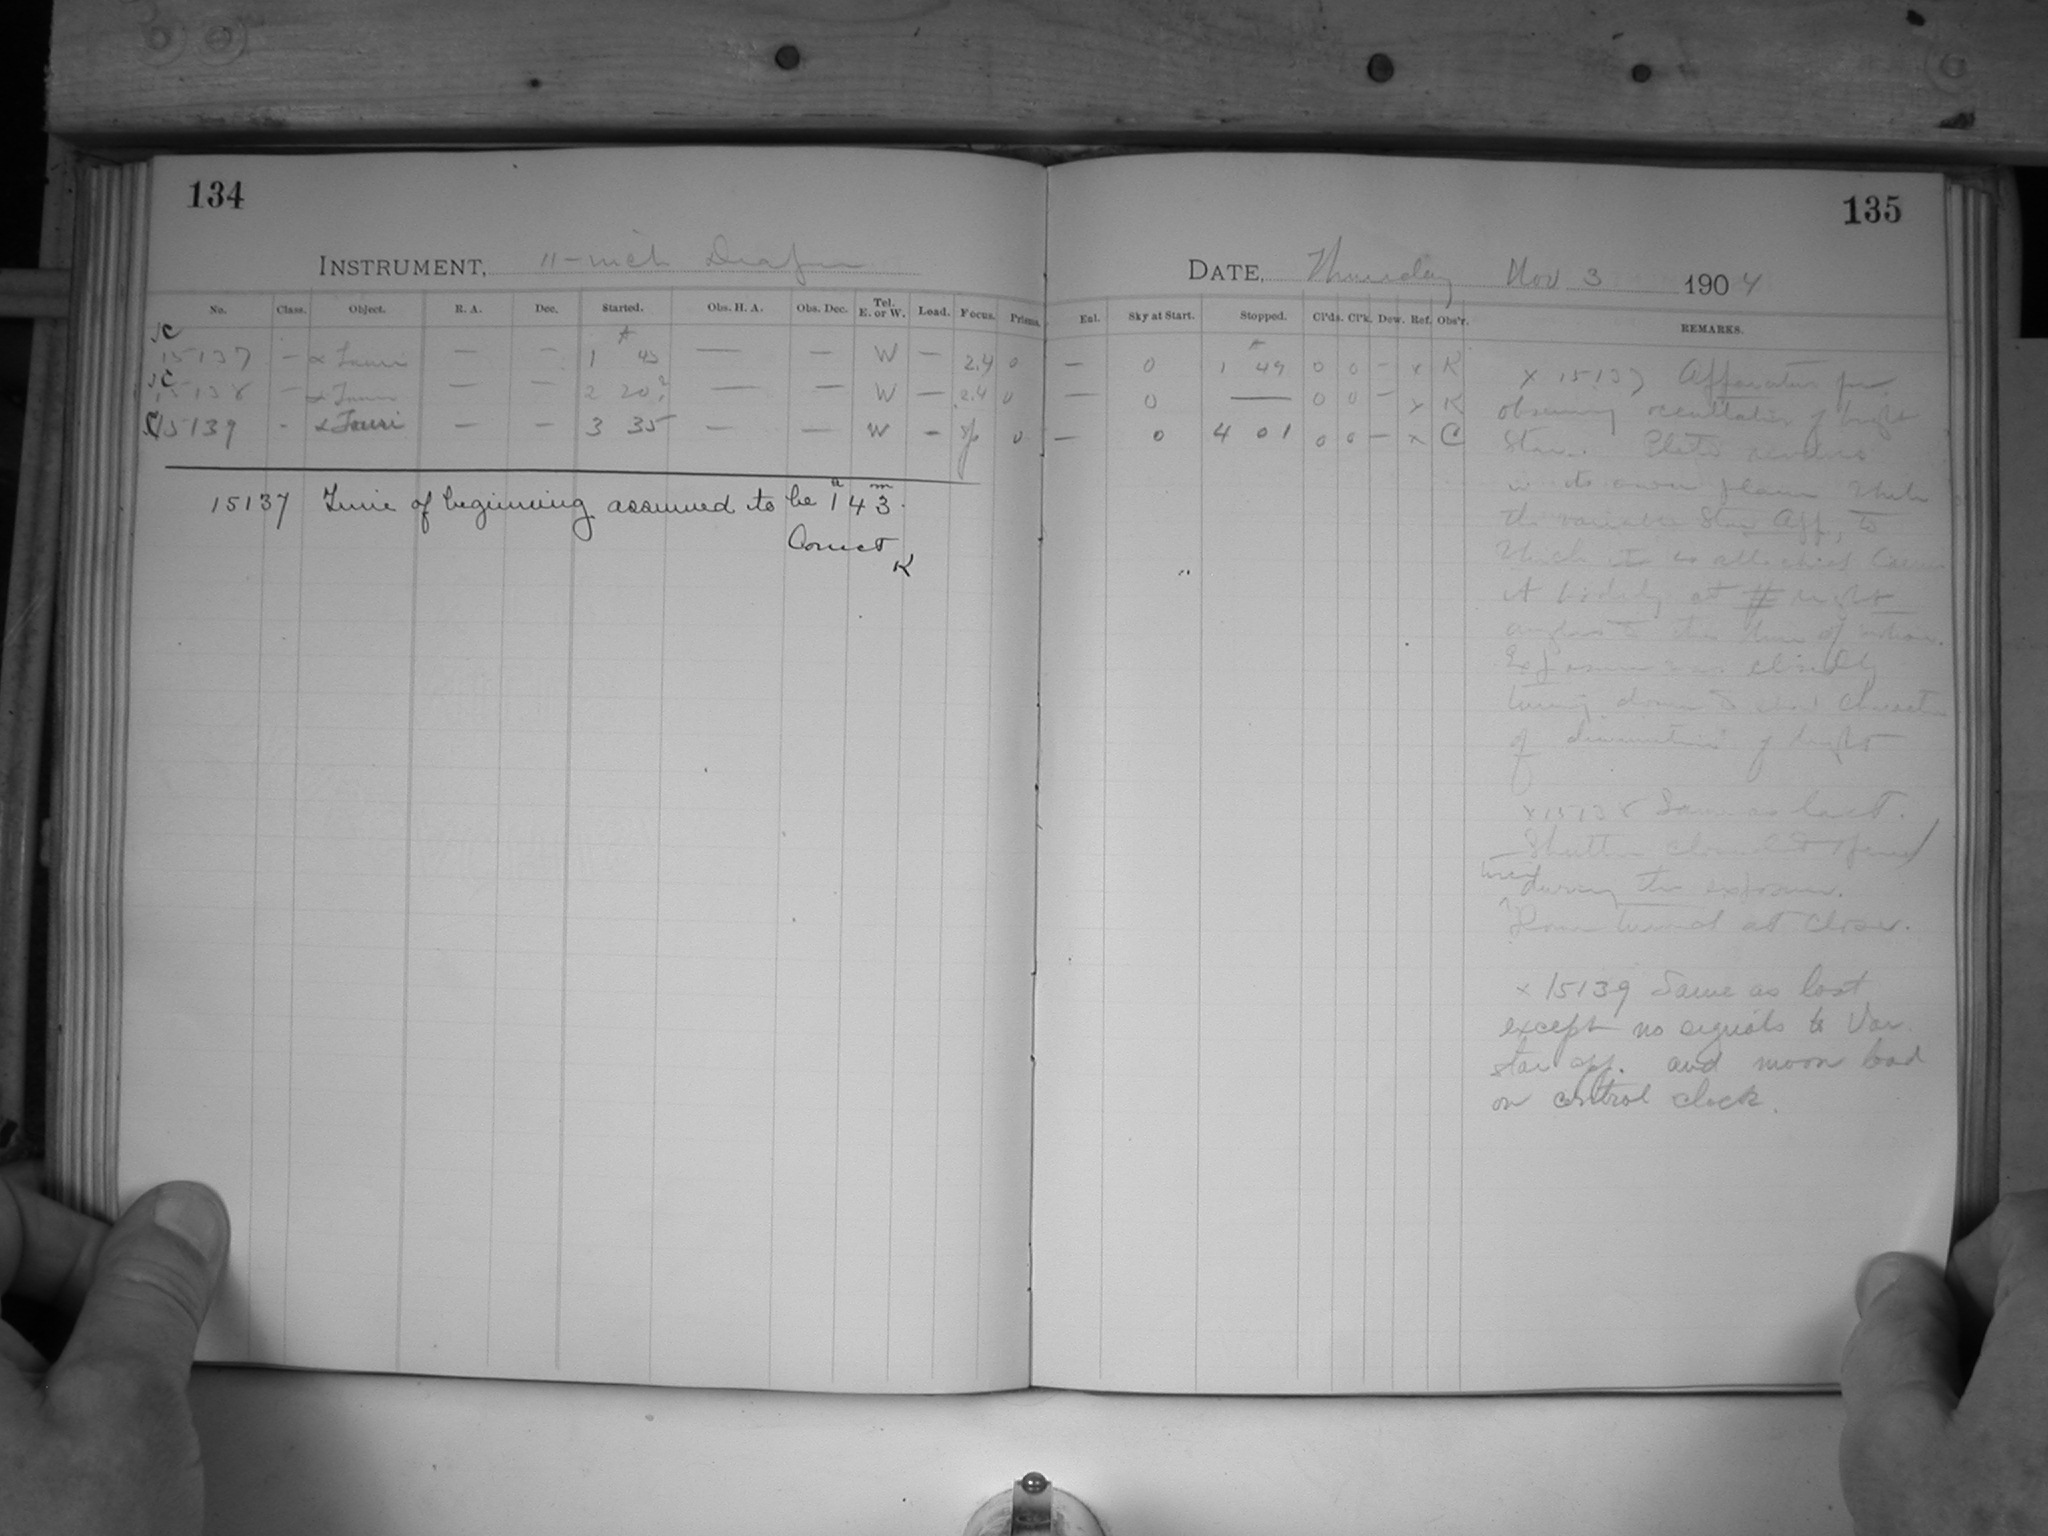 134
INSTRUMENT, 11-inch Draper
No. Class. Object. R. A. Dec. Started. Obs. H. A. Obs. Dec. Tel. E. or W. Load. Focus. Prisms.
JC
15137 – α Tauri — — 1 43 — — W — 2.4 0
JC
15138 – α Tauri — — 2 20? — — W — 2.4 0
C
15139 - α Tauri — — 3 35 — — W — 0
15137 Time of beginning assumed to be 1h 43m.
Correct
K
135
DATE, Thursday Nov 3 1904
Enl. Sky at Start. Stopped. Cl'ds. Cl'k. Dew. Ref. Obs'r. REMARKS.
— 0 1 49 0 0 – x K
— 0 — 0 0 – x K
— 0 4 01 0 0 – x C
x 15137 Apparatus for
observing occultation of bright
Star. Plate remains
in its own plane while
the variable Star App., to
which it is attached
at right
angles to the line of motion.
Exposure was
of diminution of light
x 15138 Same as last.
Shutter closed & opened
during the exposure.
at close.
x 15139 Same as last
except no signals to Var.
star app. and moon bad
on control clock.